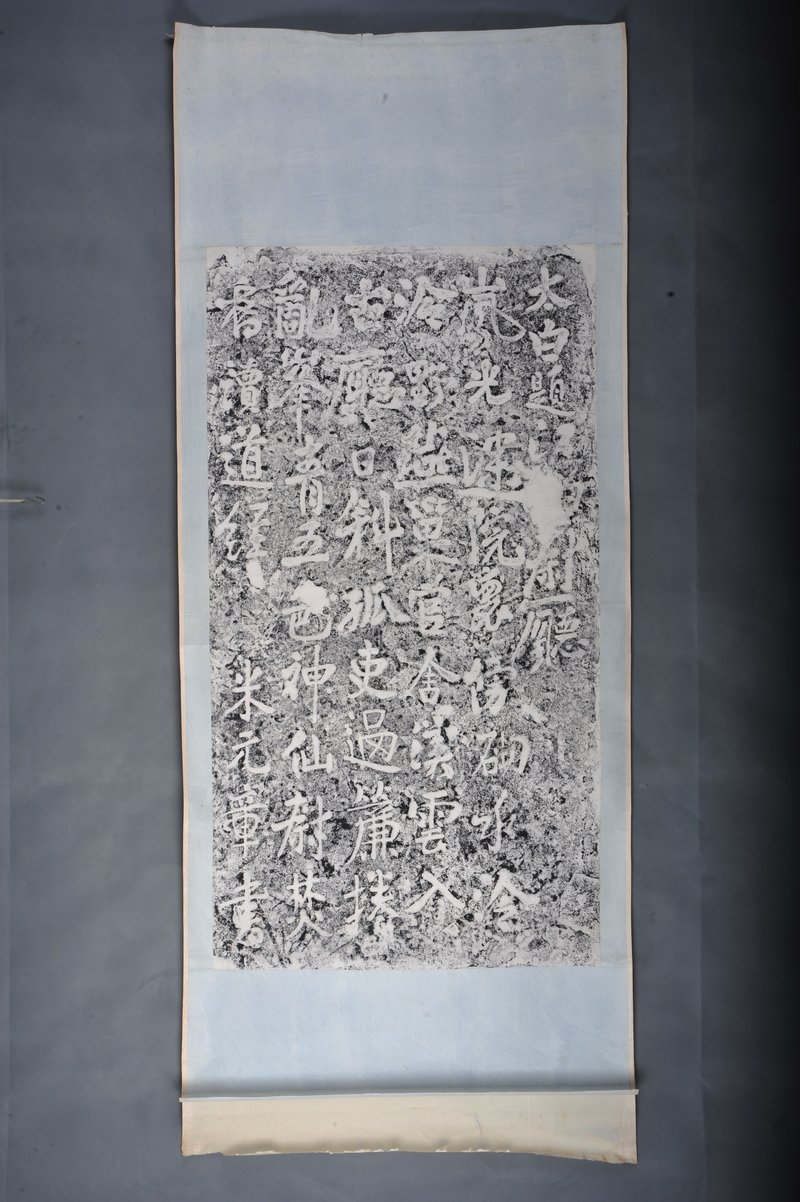 太白題江尉廳
嵐光深院裏傍砌水泠
泠野燕巢官舍溪雲入
古廳日斜孤吏過簾捲
亂峯青五色神仙尉焚
香讀道經 米元章書